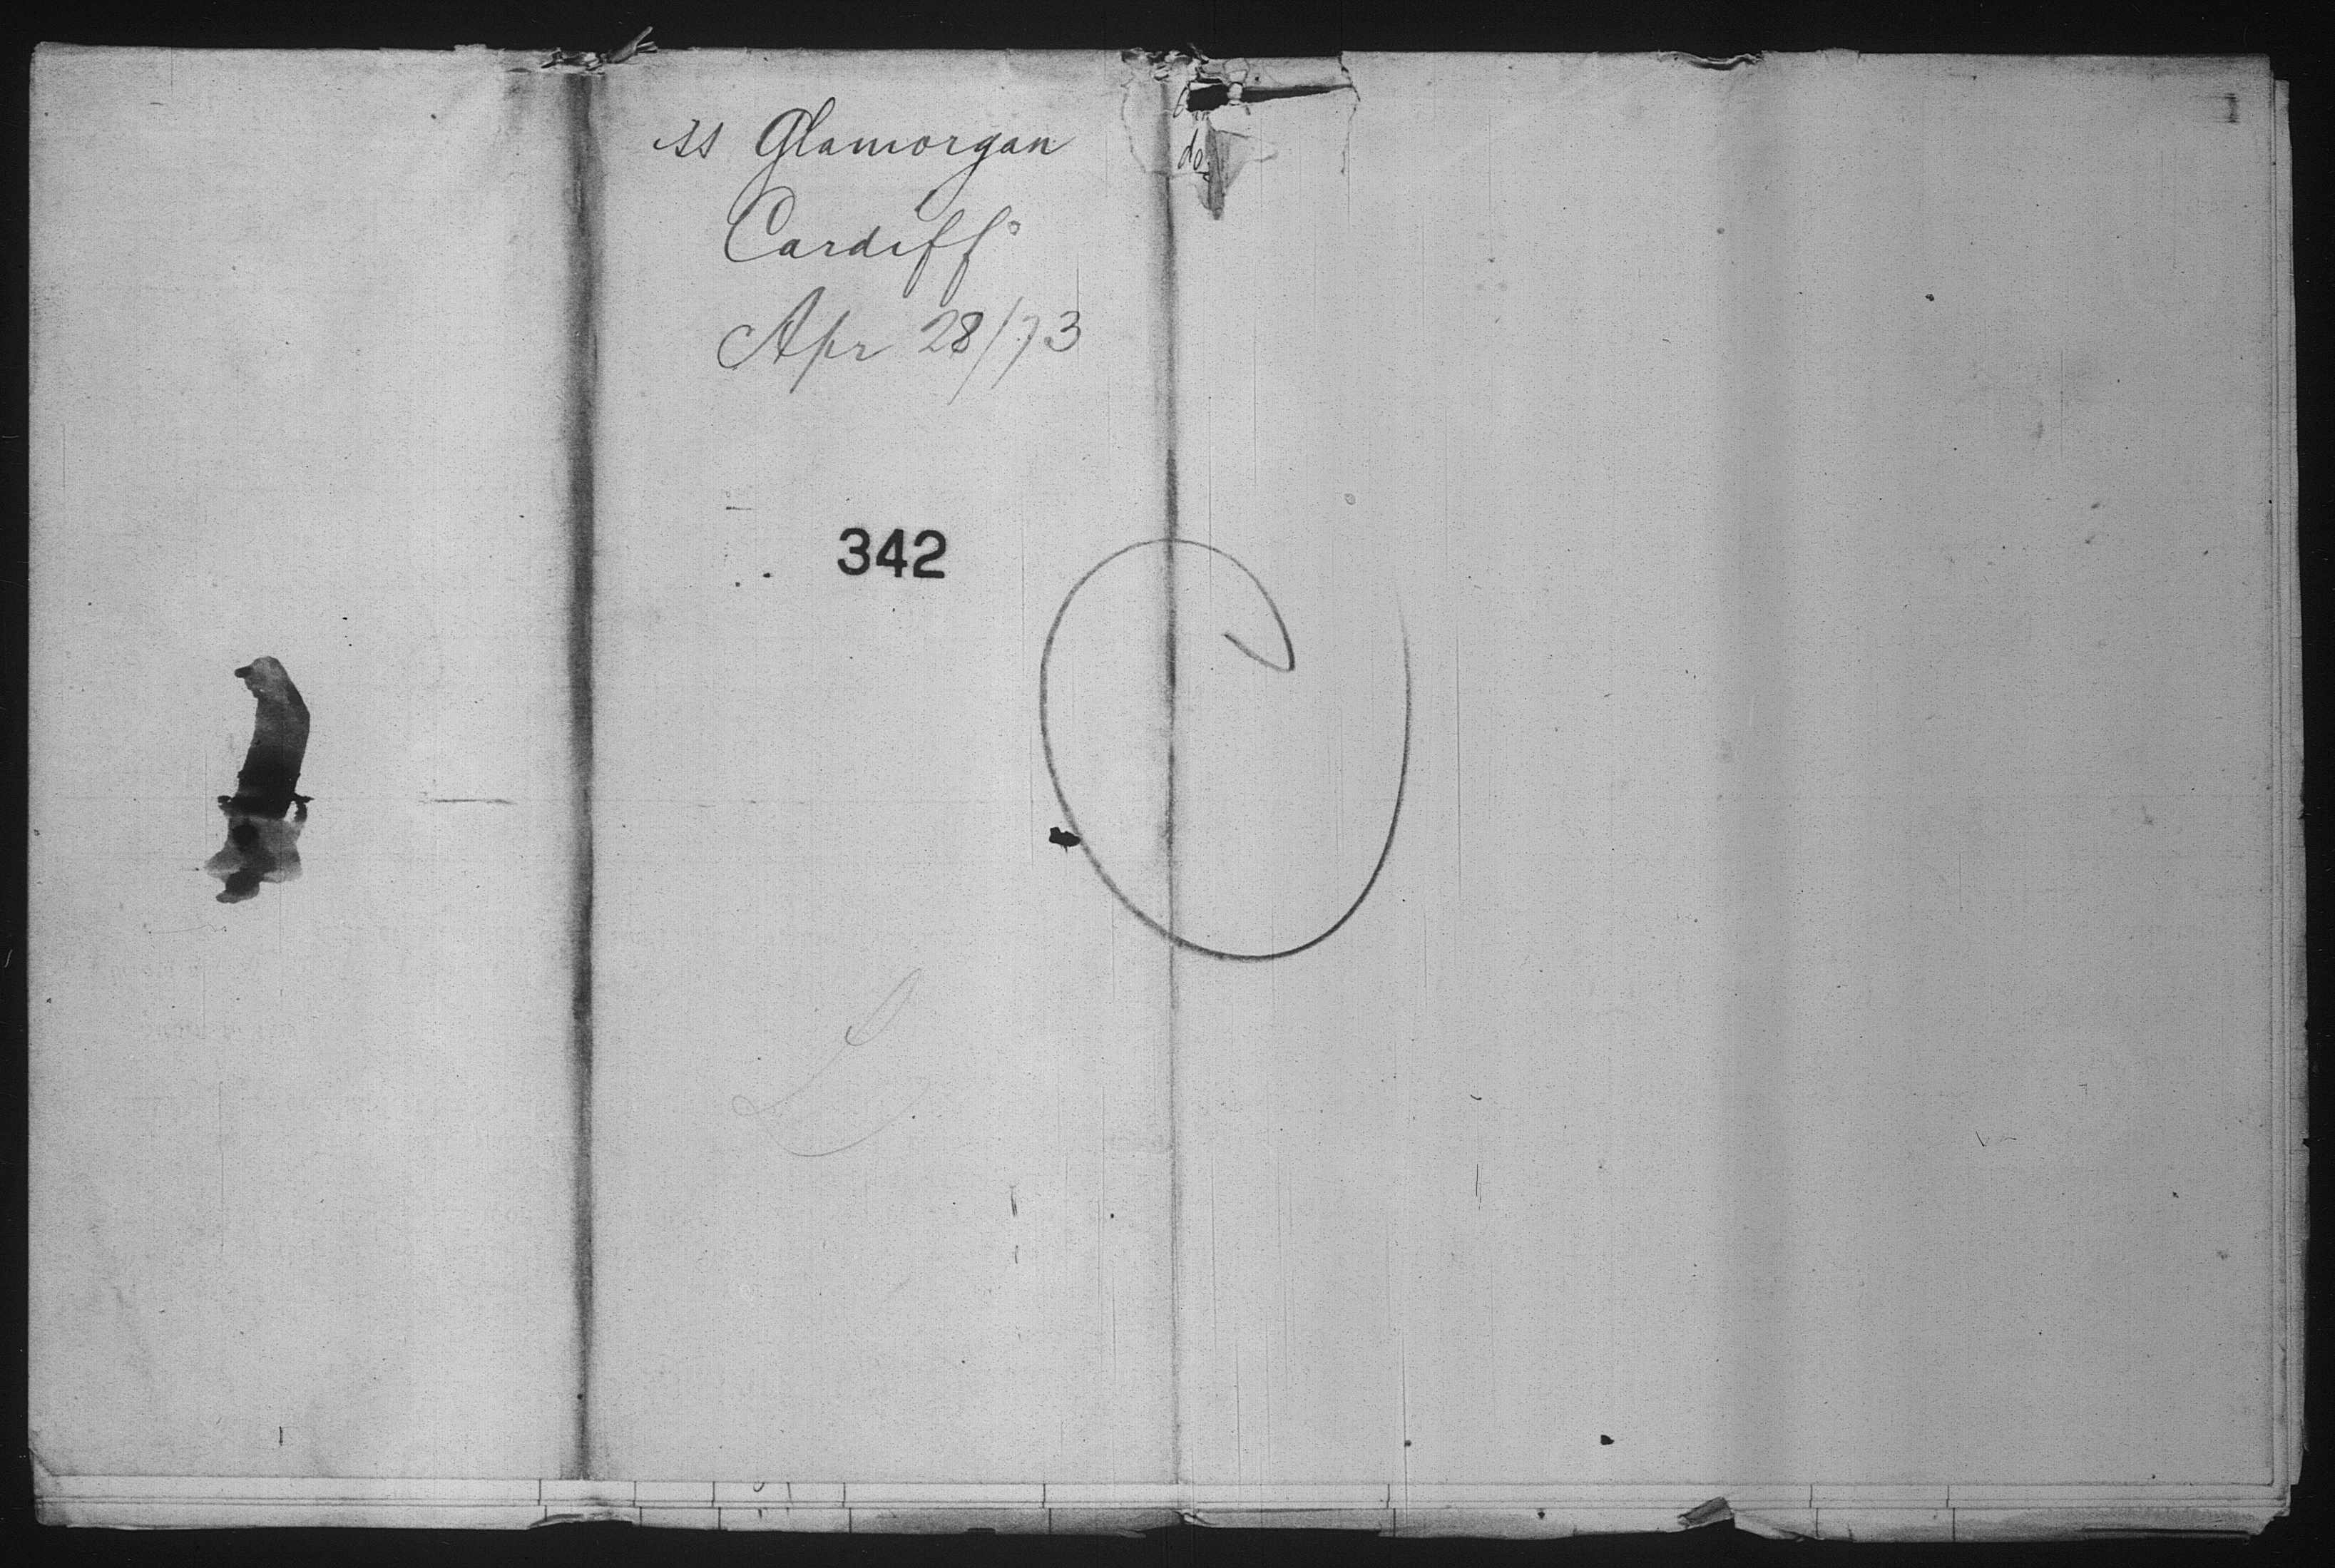 ss Glamorgan
Cardiff
Apr 28/73
342
do